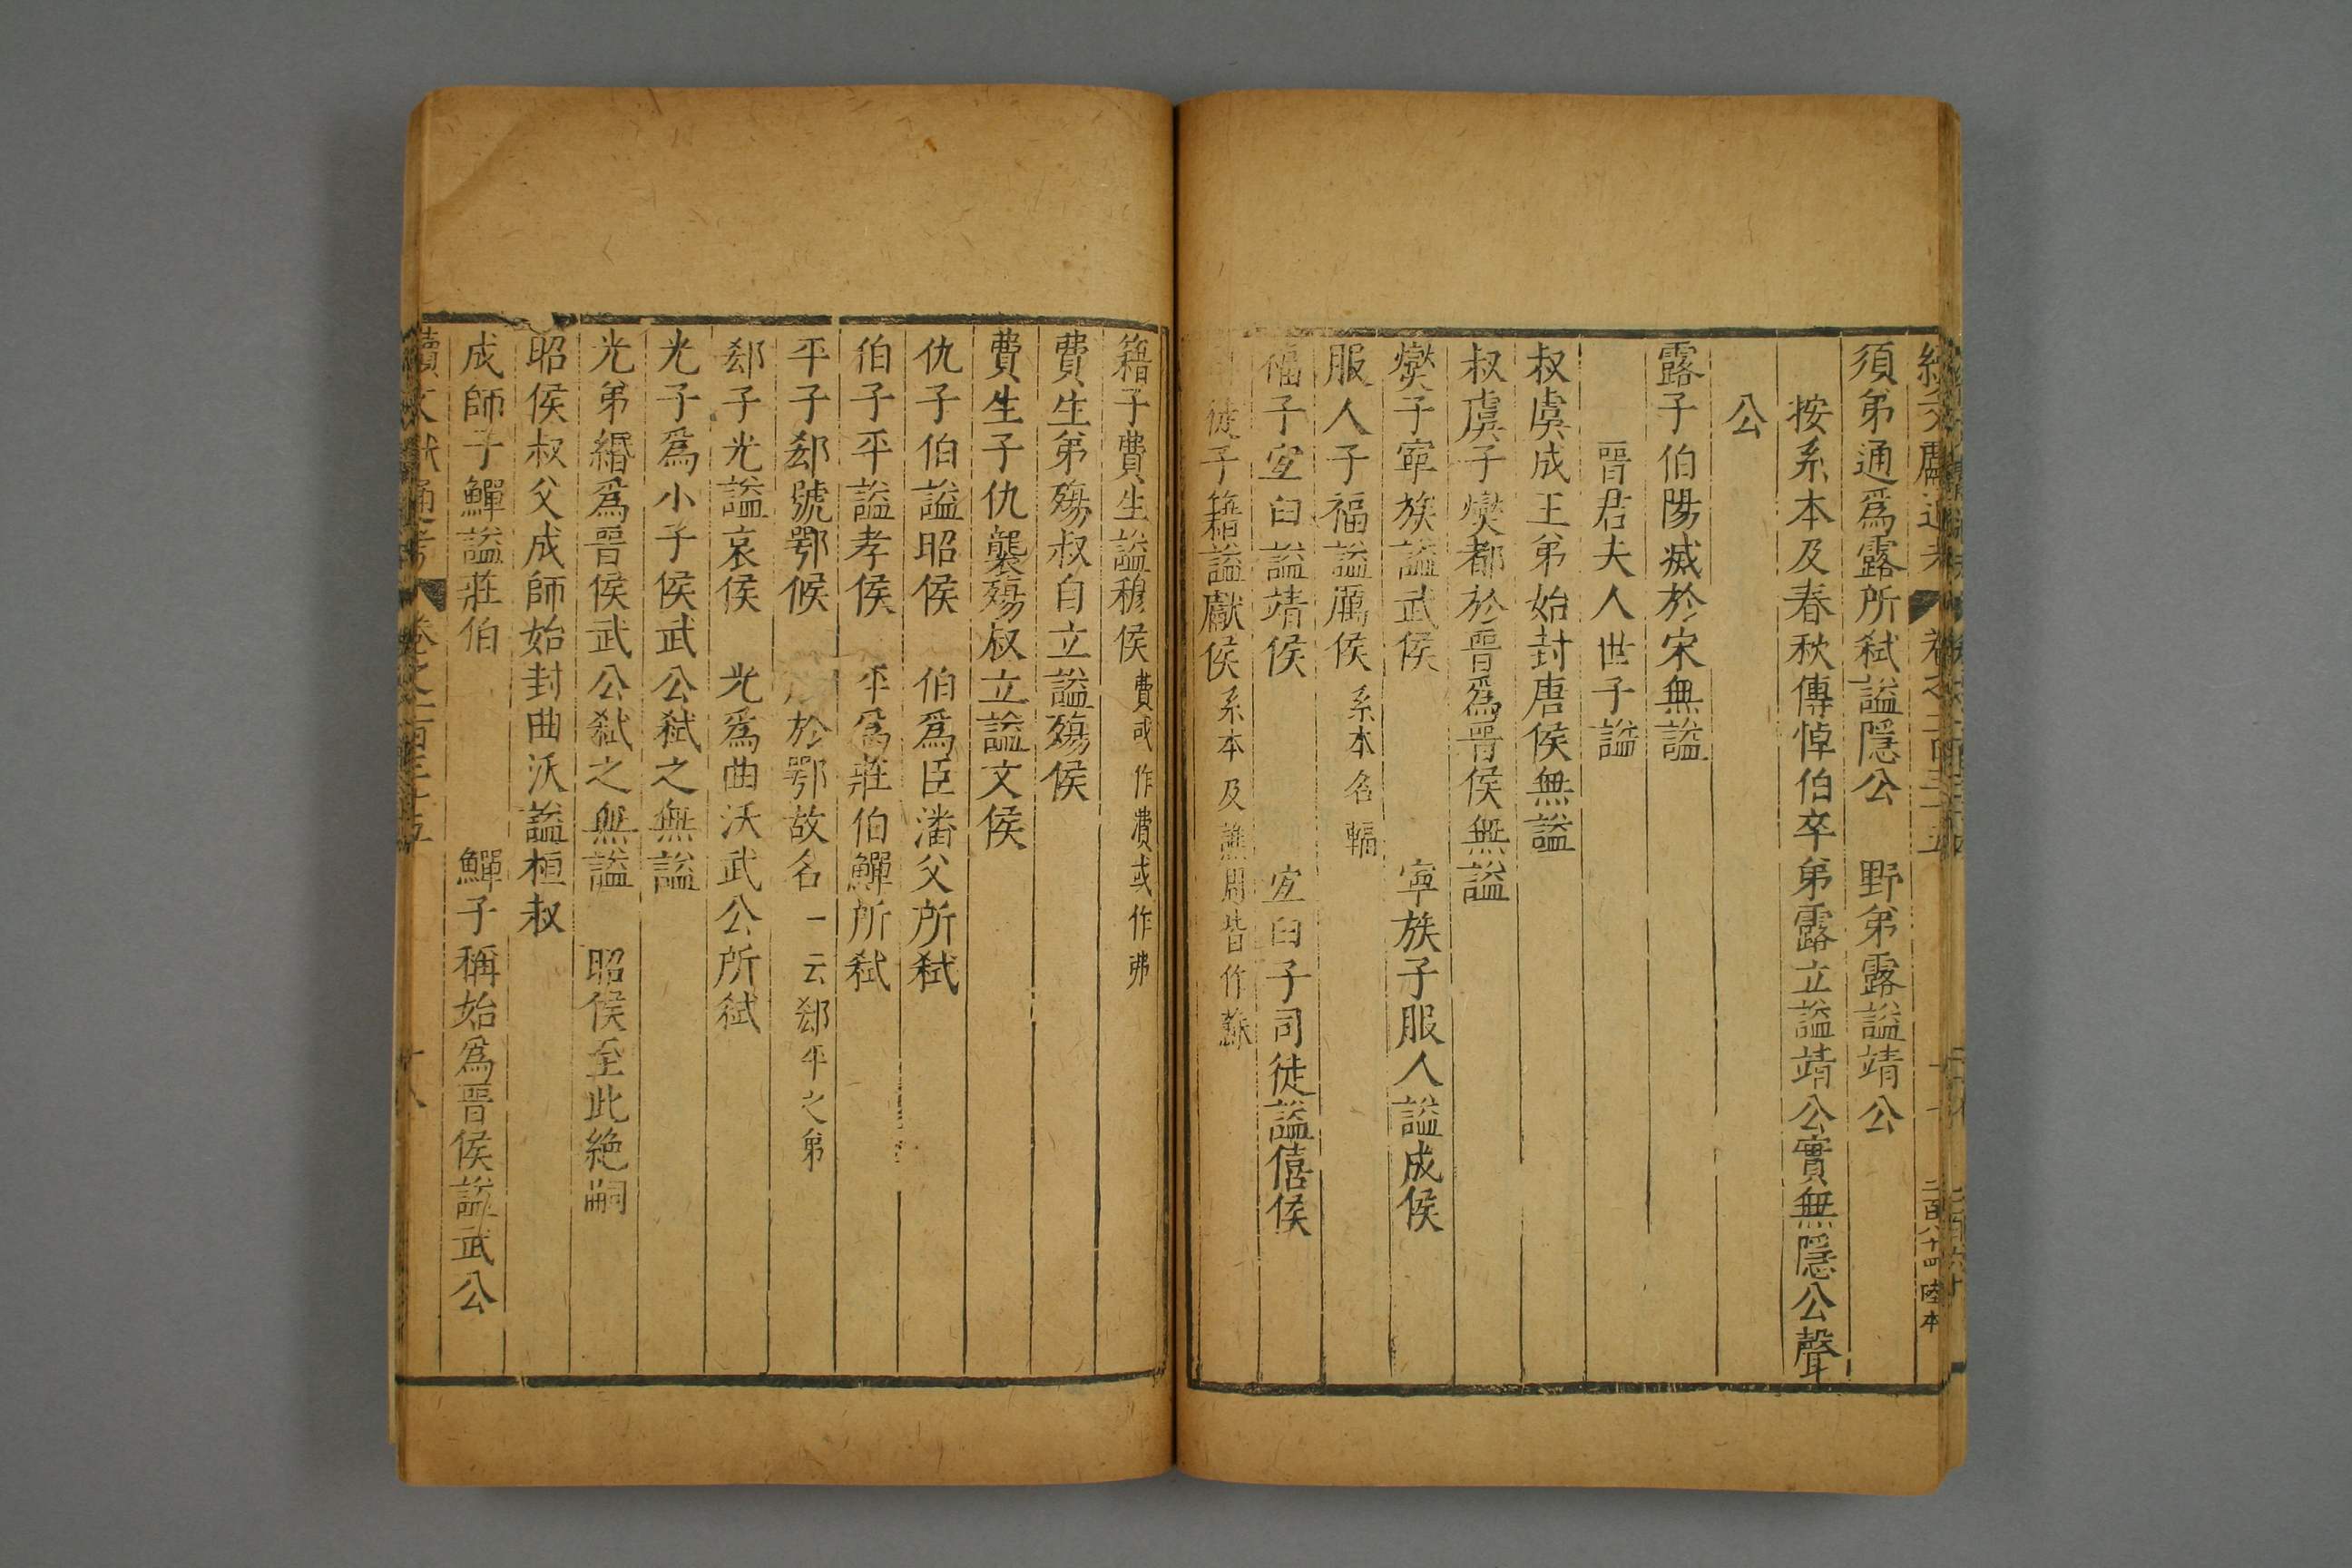 須弟通爲露所弑謚隱公　野弟露謚靖公
按系本及春秋傳悼伯卒弟露立謚靖公實無隱公聲
公
露子伯陽㓕於宋無謚
晉君夫人世子謚
叔虞成王弟始封唐侯無謚
叔虞子爕都於晉爲晉侯無謚
爕子寧族謚武侯　寧族子服人謚成侯
服人子福謚厲侯　系本名輻
福子宜臼謚靖侯　宜臼子司徒謚僖侯
徒子籍謚獻侯系本及譙周皆作蘇
籍子費生謚穆侯費或作潰或作弗
費生弟殤叔自立謚殤侯
費生子仇襲殤叔立謚文侯
仇子伯謚昭侯　伯爲臣潘父所弑
伯子平謚孝侯　平爲莊伯鱓所弑
平子郄號鄂候　於鄂故名一云郄平之弟
郄子光謚哀侯　光爲曲沃武公所弑
光子爲小子侯武公弑之無謚
光弟緡爲晉侯武公弑之無謚　昭侯至此絶嗣
昭侯叔父成師始封曲沃謚桓叔
成師子鱓謚莊伯　鱓子稱始爲晉侯謚武公
續文獻通考　卷之二百三十五　十八